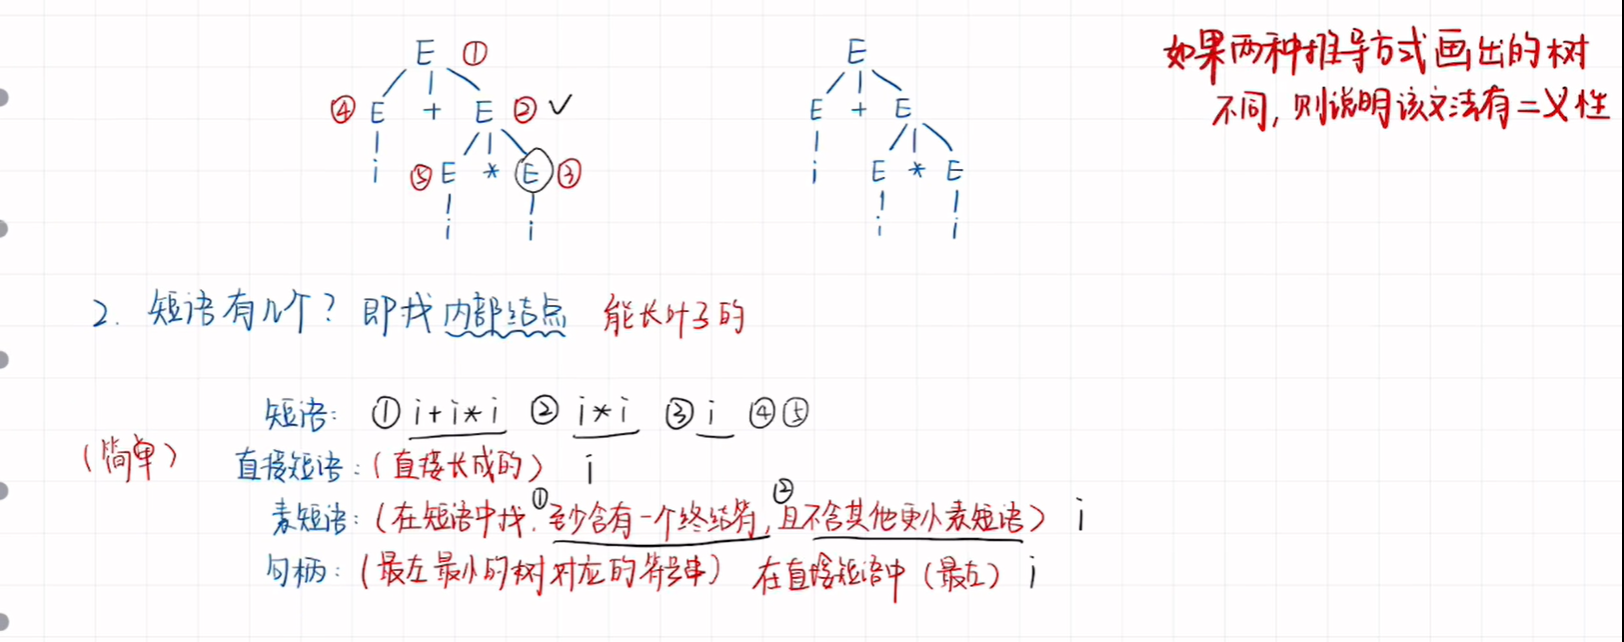 E ① E
④ E + E ② ✓ E + E
i ⑤ E * E ③ i E * E
i i i i
如果两种推导方式画出的树
不同,则说明该文法有二义性
2. 短语有几个? 即找内部结点 能长叶子的
短语: ① i+i*i ② i*i ③ i ④⑤
(简单) 直接短语:(直接长成的) i
素短语:(在短语中找:①至少含有一个终结符,②且不含其他更小素短语) i
句柄:(最左最小的树对应的符号串) 在直接短语中(最左) i